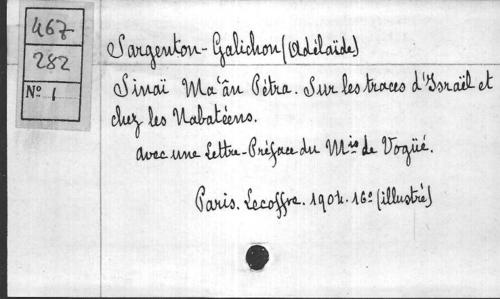 467
282
Nº 1
Sargenton-Galichon (Adélaïde)
Sinaï Ma'ân Pétra. Sur les traces d'Israël et
chez les Nabatéens.
avec une Lettre-Préface du Mis de Vogüé.
Paris. Lecoffre. 1904. 16º (illustré)